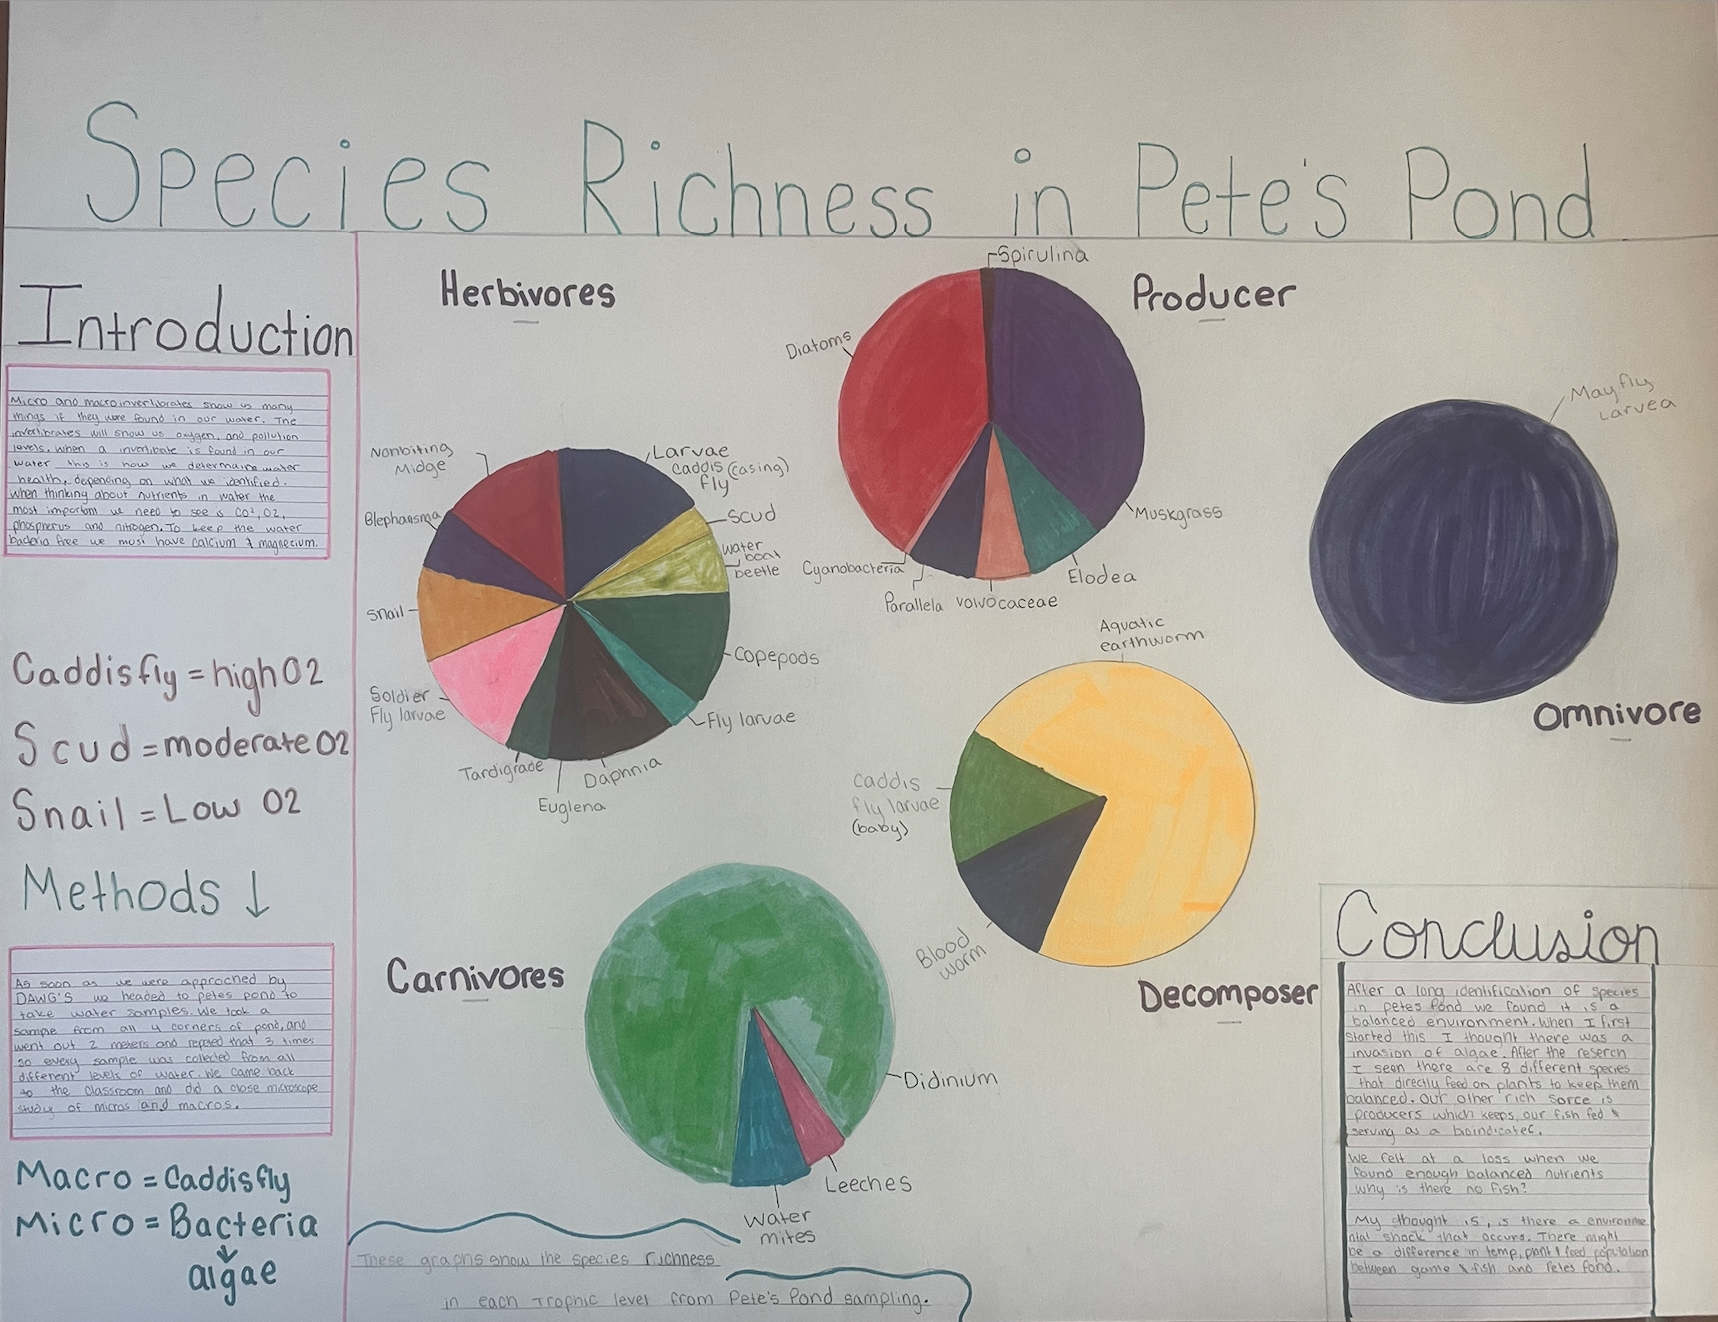 Species Richness in Pete's Pond
Introduction
Micro and macroinvertibrates show us many
things if they were found in our water. The
invertibrates will show us oxygen, and pollution
levels. When a invertibrate is found in our
water this is how we determaine water
health, depending on what we identified.
When thinking about nutrients in water the
most important we need to see is CO², O2,
phospherus and nitrogen. To keep the water
bacteria free we must have calcium & magnecium.
Caddisfly = high O2
Scud = moderate O2
Snail = Low O2
Methods ↓
As soon as we were approched by
DAWG'S we headed to petes pond to
take water samples. We took a
sample from all 4 corners of pond, and
went out 2 meters and repeted that 3 times
so every sample was collected from all
different levels of water. We came back
to the classroom and did a close microscope
study of micros and macros.
Macro = Caddisfly
Micro = Bacteria
↓
algae
Herbivores
Nonbiting
Midge
Blepharisma
Snail
Soldier
Fly larvae
Tardigrade
Euglena
Daphnia
Fly larvae
Copepods
water
boat
beetle
Scud
Larvae
caddis (casing)
fly
Producer
Spirulina
Diatoms
Cyanobacteria
Parallela
volvocaceae
Elodea
Muskgrass
Mayfly
Larvea
Omnivore
Aquatic
earthworm
Caddis
fly larvae
(baby)
Blood
worm
Decomposer
Carnivores
Didinium
Leeches
Water
mites
These graphs show the species richness
in each trophic level from Pete's Pond sampling.
Conclusion
After a long identification of species
in petes Pond we found it is a
balanced environment. When I first
started this I thought there was a
invasion of algae. After the reserch
I seen there are 8 different species
that directly feed on plants to keep them
balanced. Our other rich sorce is
producers which keeps, our fish fed &
serving as a bioindicatec.
We felt at a loss when we
found enough balanced nutrients
why is there no fish?
My thought is, is there a environme
ntal shock that occurs. There might
be a difference in temp, plant & feed population
between game & fish and Petes Pond.